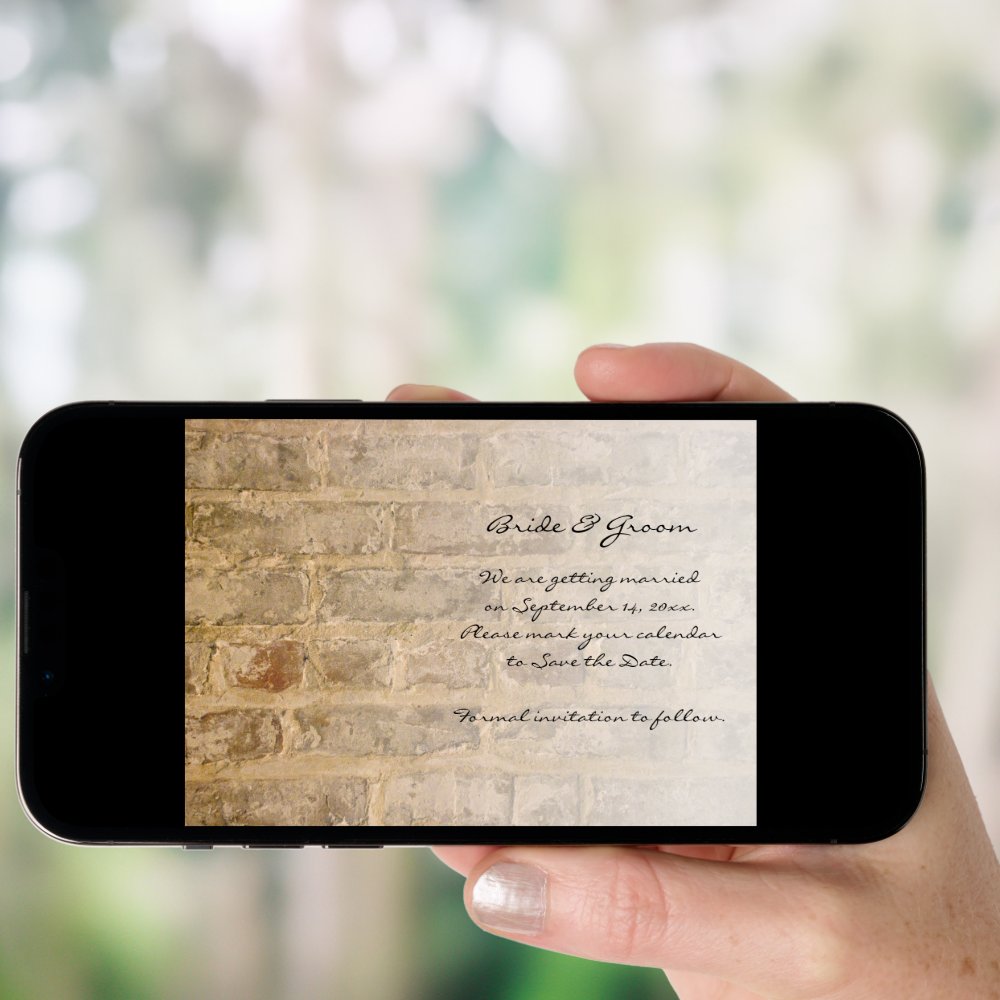 Bride & Groom
We are getting married
on September 14, 20xx.
Please mark your calendar
to Save the Date.
Formal invitation to follow.